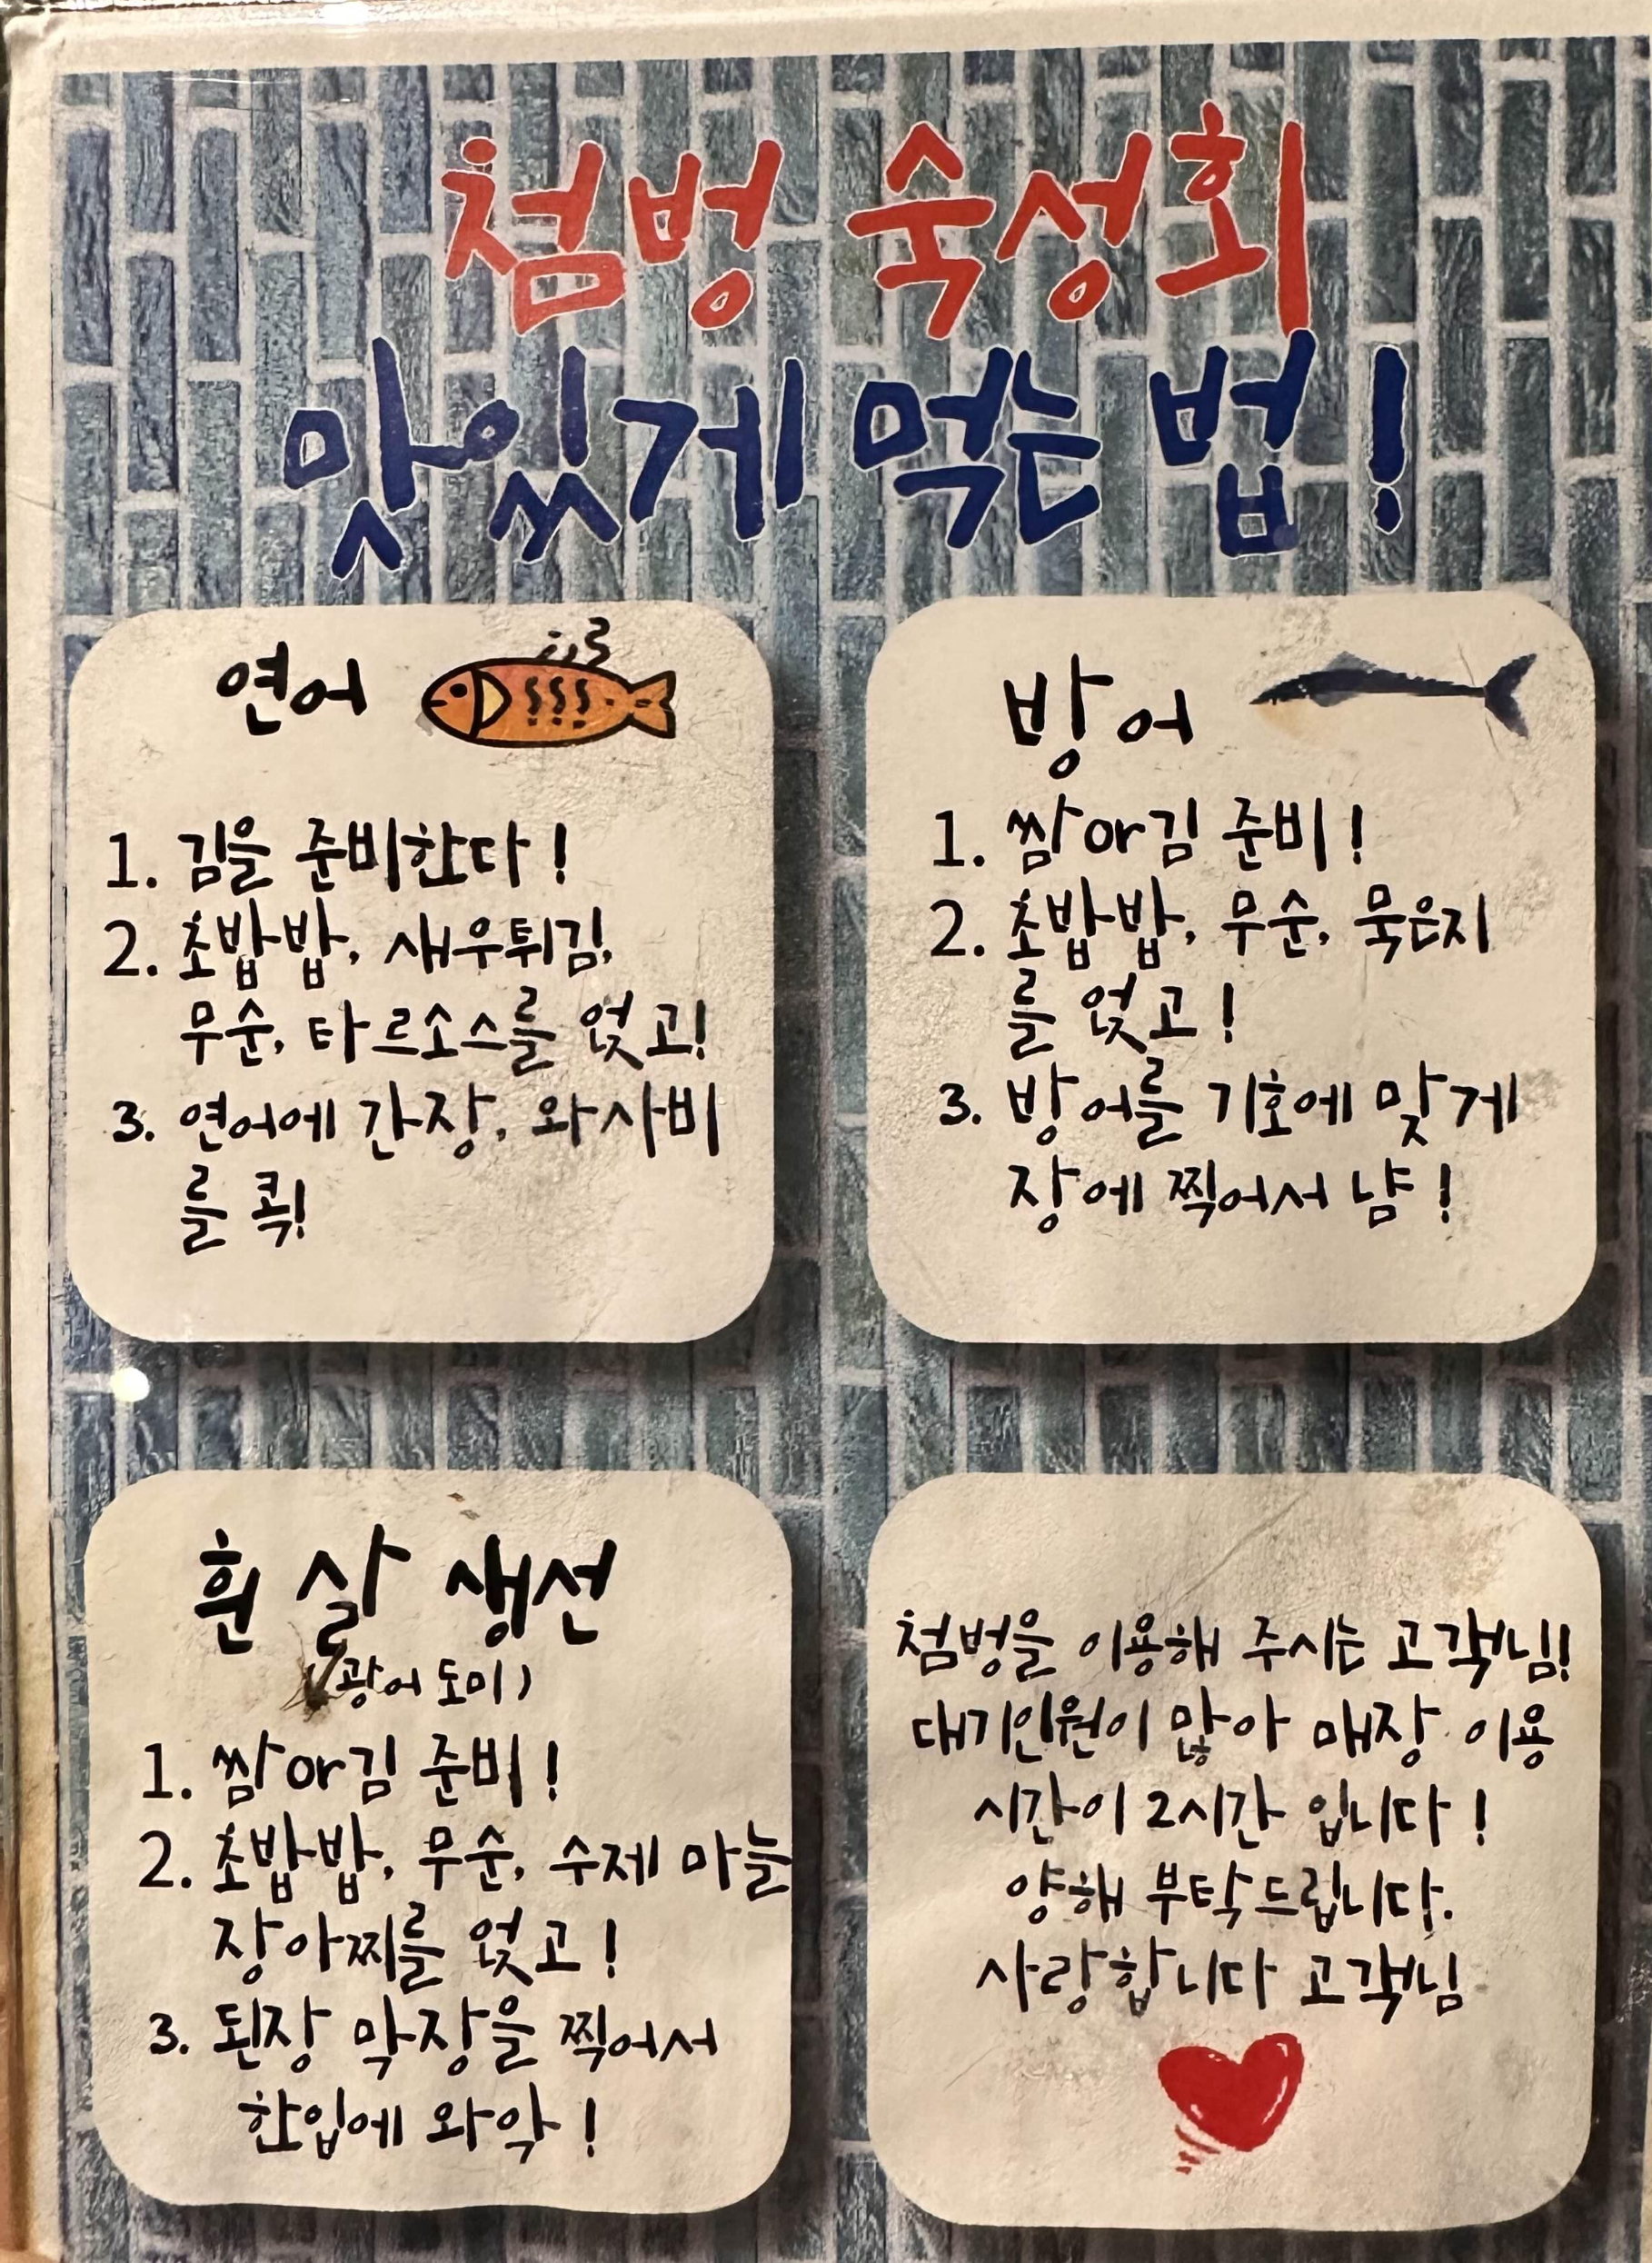 첨벙 숙성회
맛있게 먹는 법!
연어
1. 김을 준비한다!
2. 초밥밥, 새우튀김,
무순, 타르소스를 얹고!
3. 연어에 간장, 와사비
를 콕!
방어
1. 쌈or김 준비!
2. 초밥밥, 무순, 묵은지
를 얹고!
3. 방어를 기호에 맞게
장에 찍어서 냠!
흰 살 생선
(광어 도미)
1. 쌈or김 준비!
2. 초밥밥, 무순, 수제 마늘
장아찌를 얹고!
3. 된장 막장을 찍어서
한입에 와악!
첨벙을 이용해 주시는 고객님!
대기인원이 많아 매장 이용
시간이 2시간 입니다!
양해 부탁드립니다.
사랑합니다 고객님